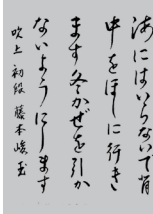 海にはいらないで背
中をほしに行き
ます冬かぜを引か
ないようにします
吹上 初段 藤本峻